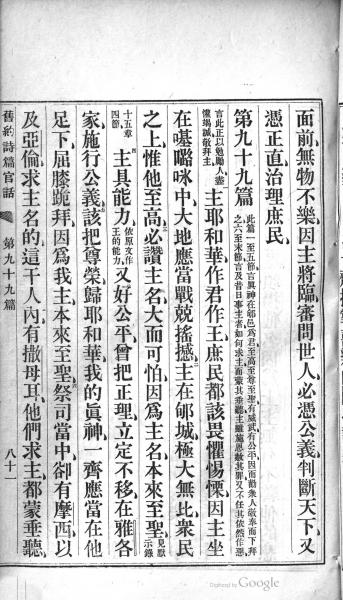 面前、無物不樂、因主將臨、審問世人、必憑公義、判斷天下、又
憑正直治理庶民、
第九十九篇
此篇一至五節言眞神在郇邑爲君至高至尊至聖有威武有公平因而勸衆人敬奉而下拜
之六至末節言及昔日事主者如何求主而蒙其垂聽主雖施恩赦其罪又不任其依然作惡
言此正以勉勵人盡
懼竭誠敬拜主
主耶和華作君作王、庶民都該畏懼惕慄、因主坐
在𠼻𡀔咪中、大地應當戰兢搖撼、主在郇城、極大無比、衆民
之上、惟他至高、必讚主名大而可怕、因爲主名本來至聖、
見默
示錄
十五章
四節
主具能力、
依原文作
王的能力
又好公平、曾把正理、立定不移、在雅各
家施行公義、該把尊榮歸耶和華、我的眞神、一齊應當在他
足下、屈膝跪拜、因爲我主本來至聖、祭司當中、卻有摩西、以
及亞倫、求主名的這干人內、有撒母耳、他們求主、都蒙垂聽、
舊約詩篇官話
第九十九篇
八十一
Digitized by Google